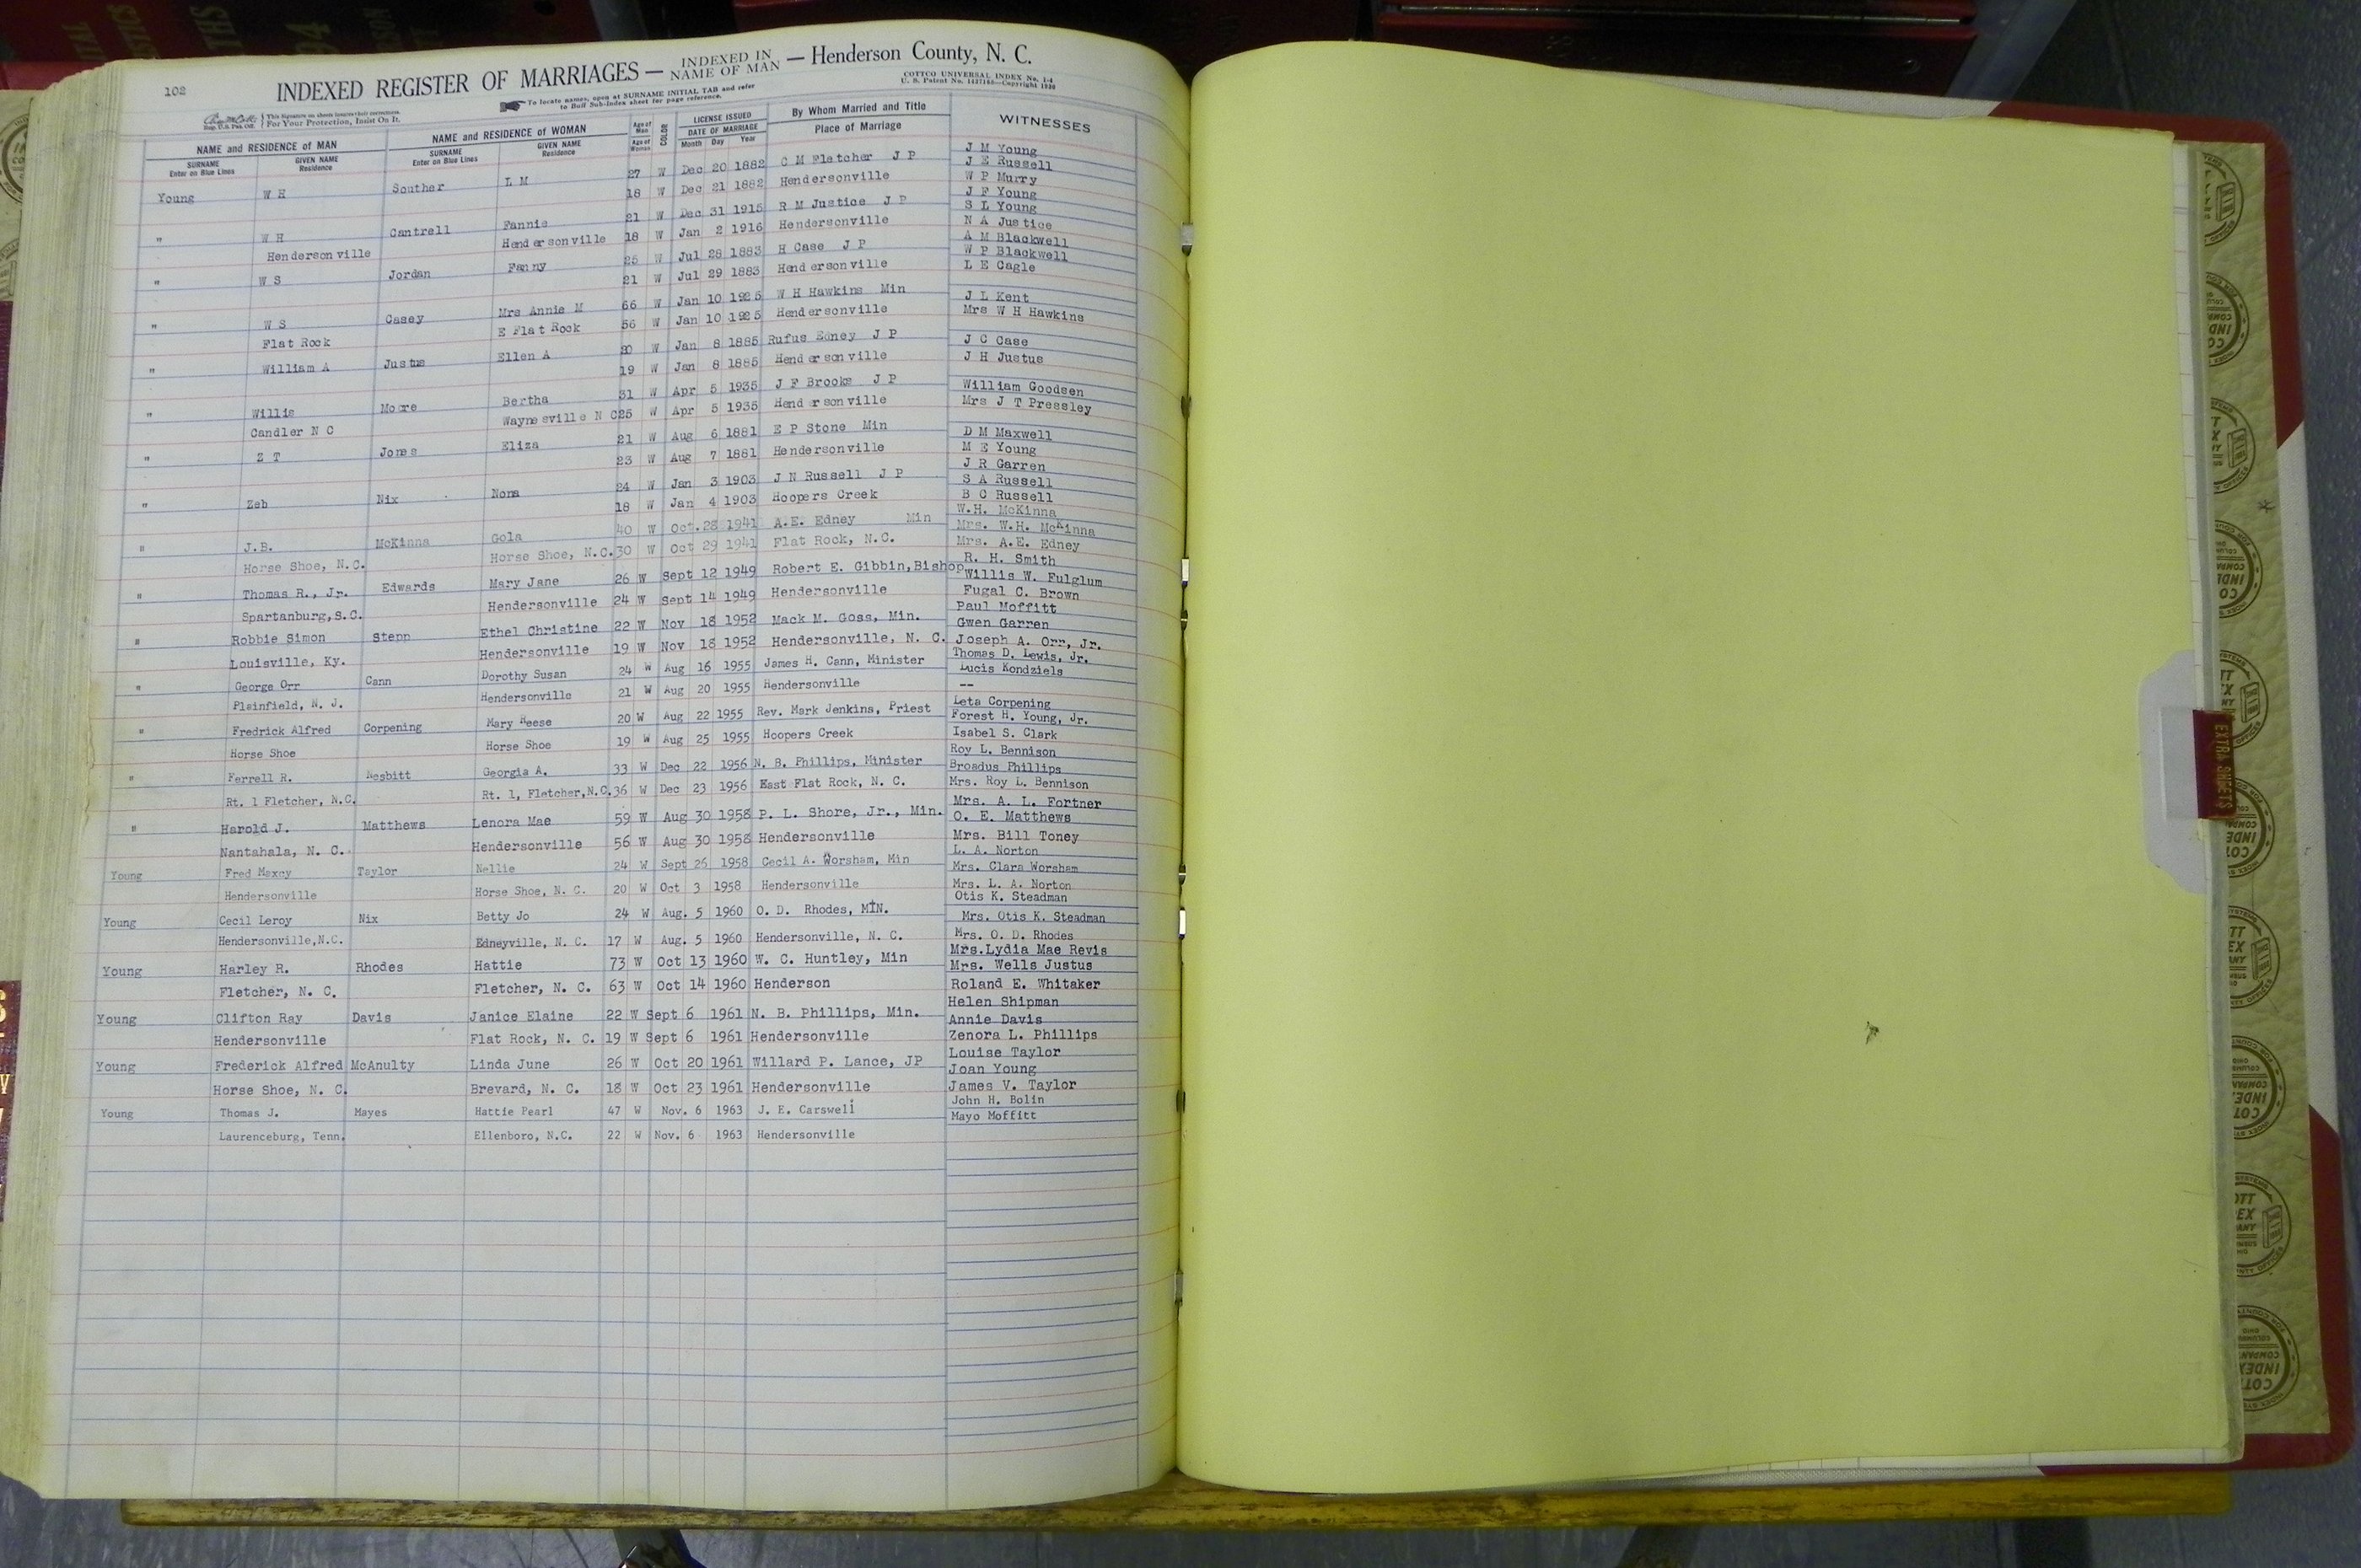 102
INDEXED REGISTER OF MARRIAGES — INDEXED IN NAME OF MAN — Henderson County, N. C.
COTTCO UNIVERSAL INDEX No. 1-4
U. S. Patent No. 1427188—Copyright 1930
To locate names, open at SURNAME INITIAL TAB and refer
to Buff Sub-Index sheet for page reference.
For Your Protection, Insist On It.
NAME and RESIDENCE of MAN NAME and RESIDENCE of WOMAN Age of Man Age of Woman COLOR LICENSE ISSUED By Whom Married and Title WITNESSES
DATE OF MARRIAGE Place of Marriage
SURNAME GIVEN NAME SURNAME GIVEN NAME Month Day Year
Enter on Blue Lines Residence Enter on Blue Lines Residence
Young W H Souther L M 27 W Dec 20 1882 C M Fletcher J P J M Young
J E Russell
18 W Dec 21 1882 Hendersonville W P Murry
" W H Cantrell Fannie 21 W Dec 31 1915 R M Justice J P J F Young
S L Young
Hendersonville Hendersonville 18 W Jan 2 1916 Hendersonville N A Justice
" W S Jordan Fanny 25 W Jul 28 1883 H Case J P A M Blackwell
W P Blackwell
21 W Jul 29 1883 Hendersonville L E Cagle
" W S Casey Mrs Annie M 66 W Jan 10 1925 W H Hawkins Min J L Kent
Flat Rock E Flat Rock 56 W Jan 10 1925 Hendersonville Mrs W H Hawkins
" William A Justus Ellen A 20 W Jan 8 1885 Rufus Edney J P J C Case
19 W Jan 8 1885 Hendersonville J H Justus
" Willis Moore Bertha 31 W Apr 5 1935 J F Brooks J P William Goodsen
Candler N C Waynesville N C 25 W Apr 5 1935 Hendersonville Mrs J T Pressley
" Z T Jones Eliza 21 W Aug 6 1881 E P Stone Min D M Maxwell
M E Young
23 W Aug 7 1881 Hendersonville J R Garren
" Zeb Nix Nora 24 W Jan 3 1903 J N Russell J P S A Russell
18 W Jan 4 1903 Hoopers Creek B C Russell
" J.B. McKinna Gola 40 W Oct. 28 1941 A.E. Edney Min W.H. McKinna
Mrs. W.H. McKinna
Horse Shoe, N.C. Horse Shoe, N.C. 30 W Oct 29 1941 Flat Rock, N.C. Mrs. A.E. Edney
" Thomas R., Jr. Edwards Mary Jane 26 W Sept 12 1949 Robert E. Gibbin, Bishop R. H. Smith
Willis W. Fulglum
Spartanburg, S.C. Hendersonville 24 W Sept 14 1949 Hendersonville Fugal C. Brown
" Robbie Simon Stepp Ethel Christine 22 W Nov 18 1952 Mack M. Goss, Min. Paul Moffitt
Gwen Garren
Louisville, Ky. Hendersonville 19 W Nov 18 1952 Hendersonville, N. C. Joseph A. Orr, Jr.
" George Orr Cann Dorothy Susan 24 W Aug 16 1955 James H. Cann, Minister Thomas D. Lewis, Jr.
Lucis Kondziels
Plainfield, N. J. Hendersonville 21 W Aug 20 1955 Hendersonville --
" Fredrick Alfred Corpening Mary Reese 20 W Aug 22 1955 Rev. Mark Jenkins, Priest Leta Corpening
Forest H. Young, Jr.
Horse Shoe Horse Shoe 19 W Aug 25 1955 Hoopers Creek Isabel S. Clark
" Ferrell R. Nesbitt Georgia A. 33 W Dec 22 1956 N. B. Phillips, Minister Roy L. Bennison
Broadus Phillips
Rt. 1 Fletcher, N.C. Rt. 1, Fletcher, N.C. 36 W Dec 23 1956 East Flat Rock, N. C. Mrs. Roy L. Bennison
" Harold J. Matthews Lenora Mae 59 W Aug 30 1958 P. L. Shore, Jr., Min. Mrs. A. L. Fortner
O. E. Matthews
Nantahala, N. C. Hendersonville 56 W Aug 30 1958 Hendersonville Mrs. Bill Toney
Young Fred Maxcy Taylor Nellie 24 W Sept 26 1958 Cecil A. Worsham, Min L. A. Norton
Mrs. Clara Worsham
Hendersonville Horse Shoe, N. C. 20 W Oct 3 1958 Hendersonville Mrs. L. A. Norton
Young Cecil Leroy Nix Betty Jo 24 W Aug. 5 1960 O. D. Rhodes, MIN. Otis K. Steadman
Mrs. Otis K. Steadman
Hendersonville, N.C. Edneyville, N. C. 17 W Aug. 5 1960 Hendersonville, N. C. Mrs. O. D. Rhodes
Young Harley R. Rhodes Hattie 73 W Oct 13 1960 W. C. Huntley, Min Mrs. Lydia Mae Revis
Mrs. Wells Justus
Fletcher, N. C. Fletcher, N. C. 63 W Oct 14 1960 Henderson Roland E. Whitaker
Young Clifton Ray Davis Janice Elaine 22 W Sept 6 1961 N. B. Phillips, Min. Helen Shipman
Annie Davis
Hendersonville Flat Rock, N. C. 19 W Sept 6 1961 Hendersonville Zenora L. Phillips
Young Frederick Alfred McAnulty Linda June 26 W Oct 20 1961 Willard P. Lance, JP Louise Taylor
Joan Young
Horse Shoe, N. C. Brevard, N. C. 18 W Oct 23 1961 Hendersonville James V. Taylor
Young Thomas J. Mayes Hattie Pearl 47 W Nov. 6 1963 J. E. Carswell John H. Bolin
Mayo Moffitt
Laurenceburg, Tenn. Ellenboro, N.C. 22 W Nov. 6 1963 Hendersonville
EXTRA SHEETS